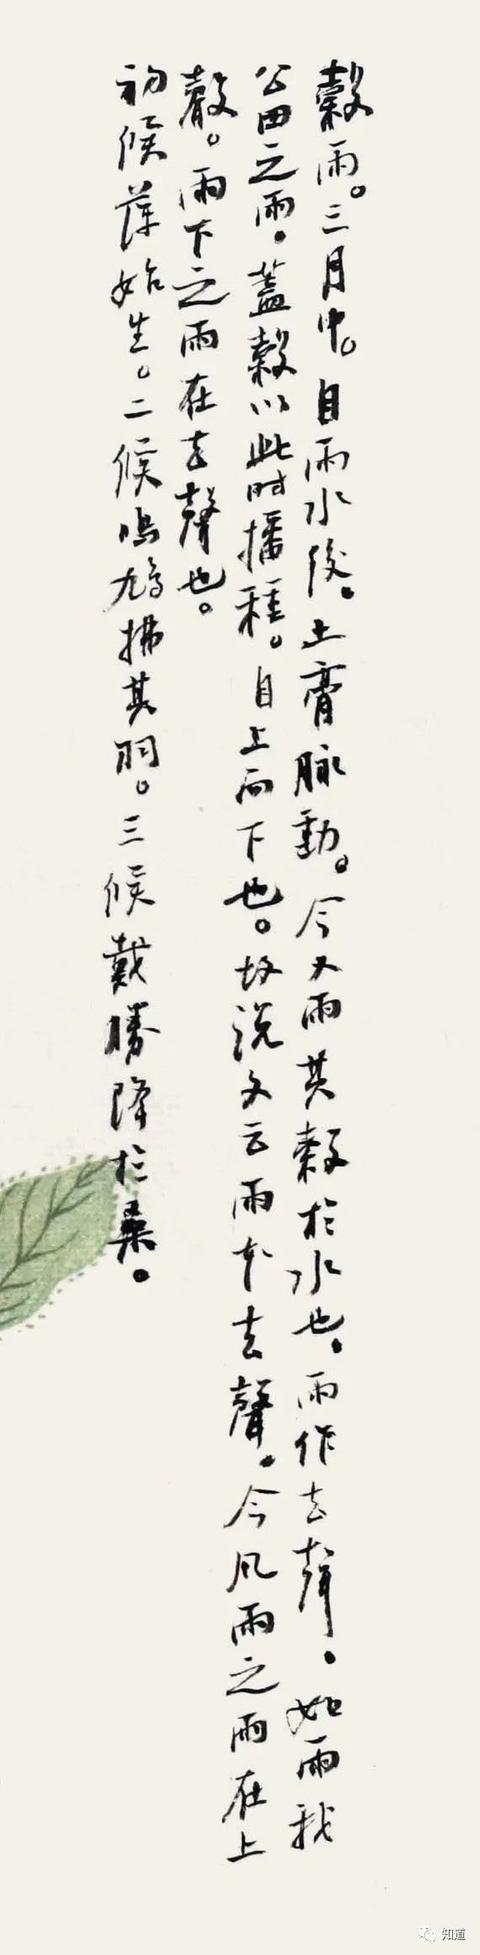 穀雨。三月中。自雨水後。土膏脉動。今又雨其穀於水也。雨作去聲。如雨我
公田之雨。蓋穀以此时播種。自上而下也。故说文云雨本去聲。今风雨之雨在上
聲。雨下之雨在去聲也。
初候萍始生。二候鳴鳩拂其羽。三候戴勝降於桑。
知道